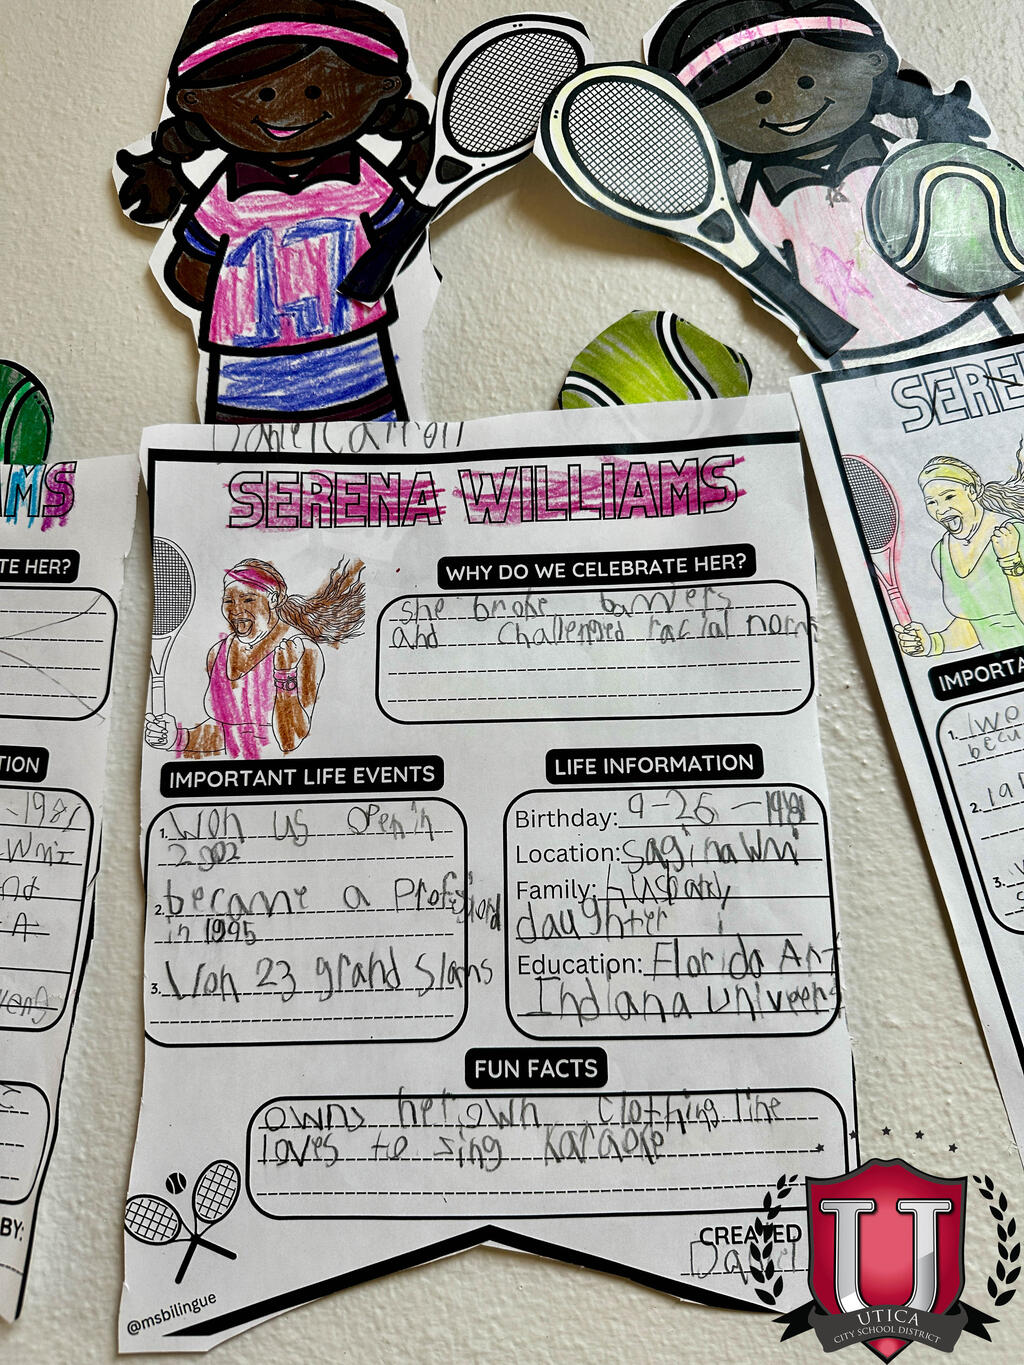 17
Daniel Carroll
SERENA WILLIAMS
WHY DO WE CELEBRATE HER?
she broke barriers
and challenged racial norms
IMPORTANT LIFE EVENTS
1. Won us open in
2002
2. became a
in 1995
3. Won 23 grand slams
LIFE INFORMATION
Birthday: 9-26-1981
Location: saginaw mi
Family: husband
daughter
Education: Florida Art
Indiana
FUN FACTS
owns her own clothing line
loves to sing karaoke
CREATED
Daniel
@msbilingue
AMS
TE HER?
TION
-1981
BY:
SERE
IMPORTA
1. Wo
becu
2.
3.
U
UTICA
CITY SCHOOL DISTRICT